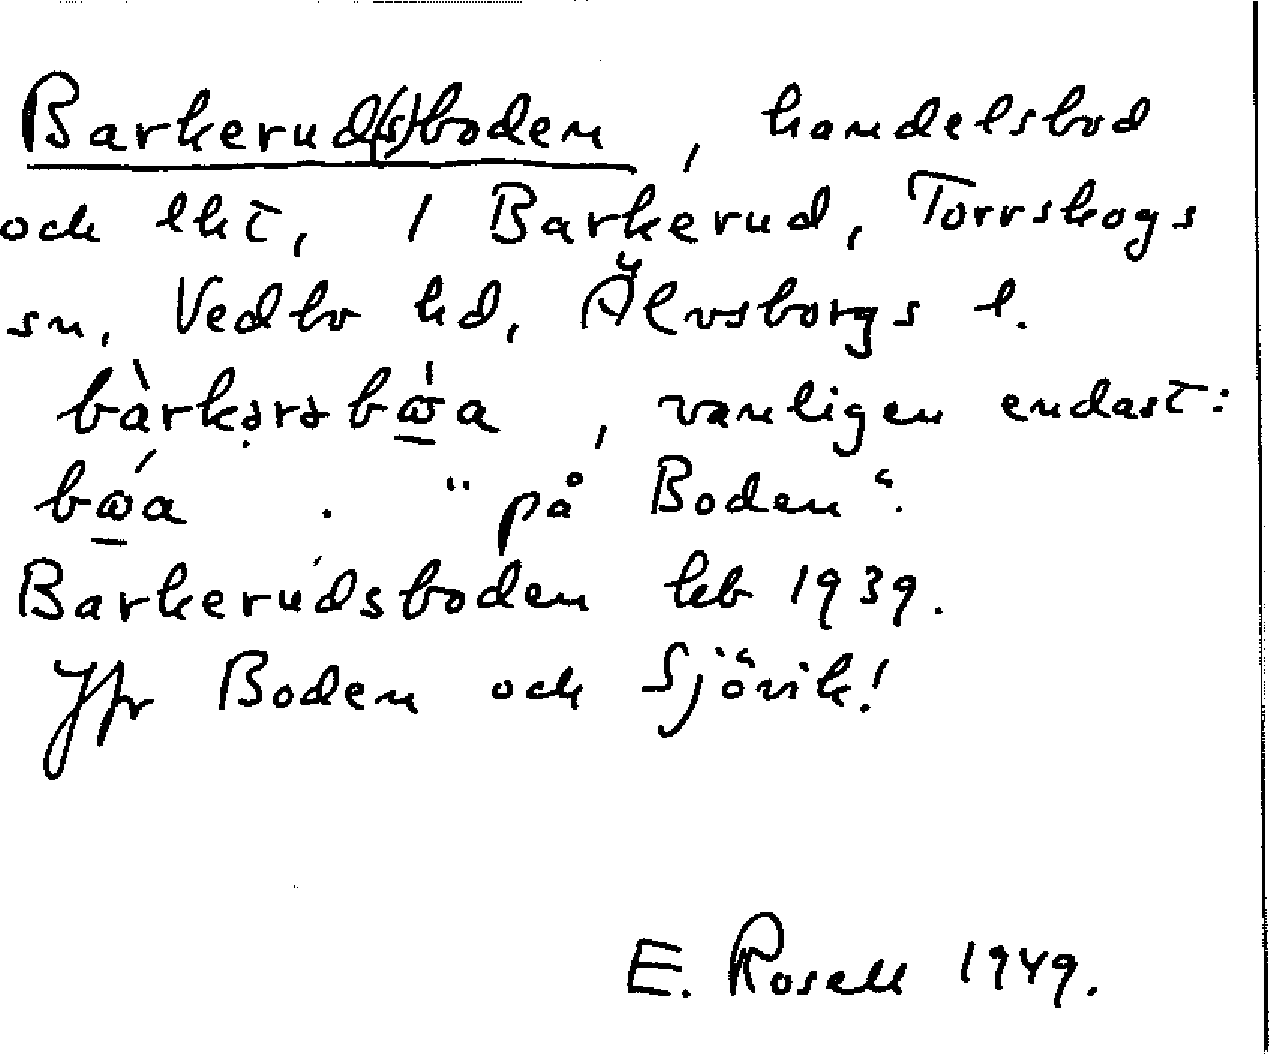 Barkerud(s)boden, handelsbod
och lht, i Barkerud, Torrskogs
sn, Vedbo hd, Älvsborgs l.
bàrkərəbὼ̲a, vanligen endast:
bώ̲a. "på Boden".
Barkerudsboden kb 1939.
Jfr Boden och Sjövik!
E. Rosell 1949.